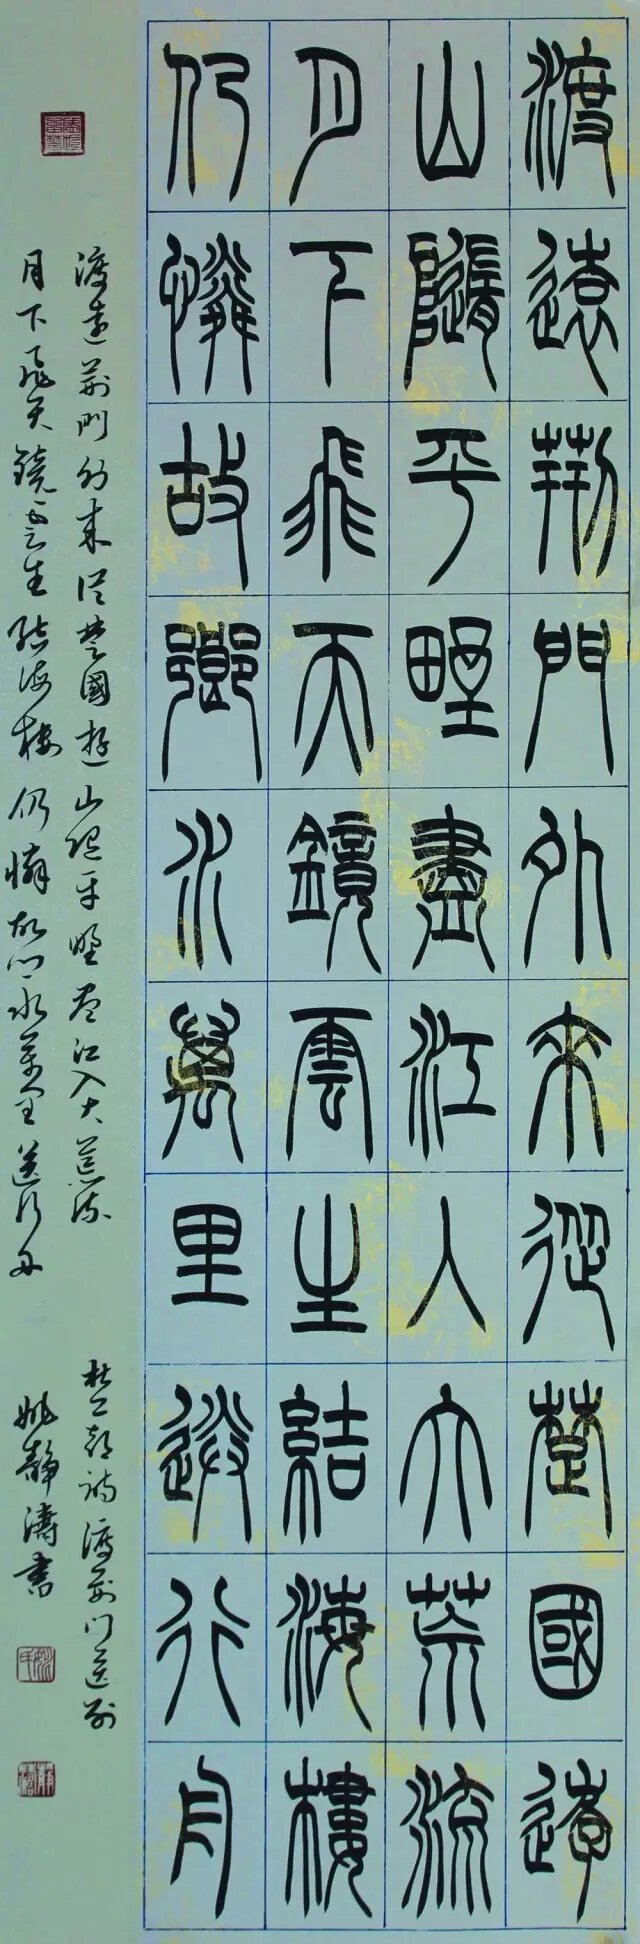 渡遠荊門外來從楚國遊
山隨平野盡江入大荒流
月下飛天鏡雲生結海樓
仍憐故鄉水萬里送行舟
渡遠荊門外來從楚國遊山隨平野盡江入大荒流
月下飛天鏡雲生結海樓仍憐故鄉水萬里送行舟
杜工部詩渡荊門送別
姚靜濤書